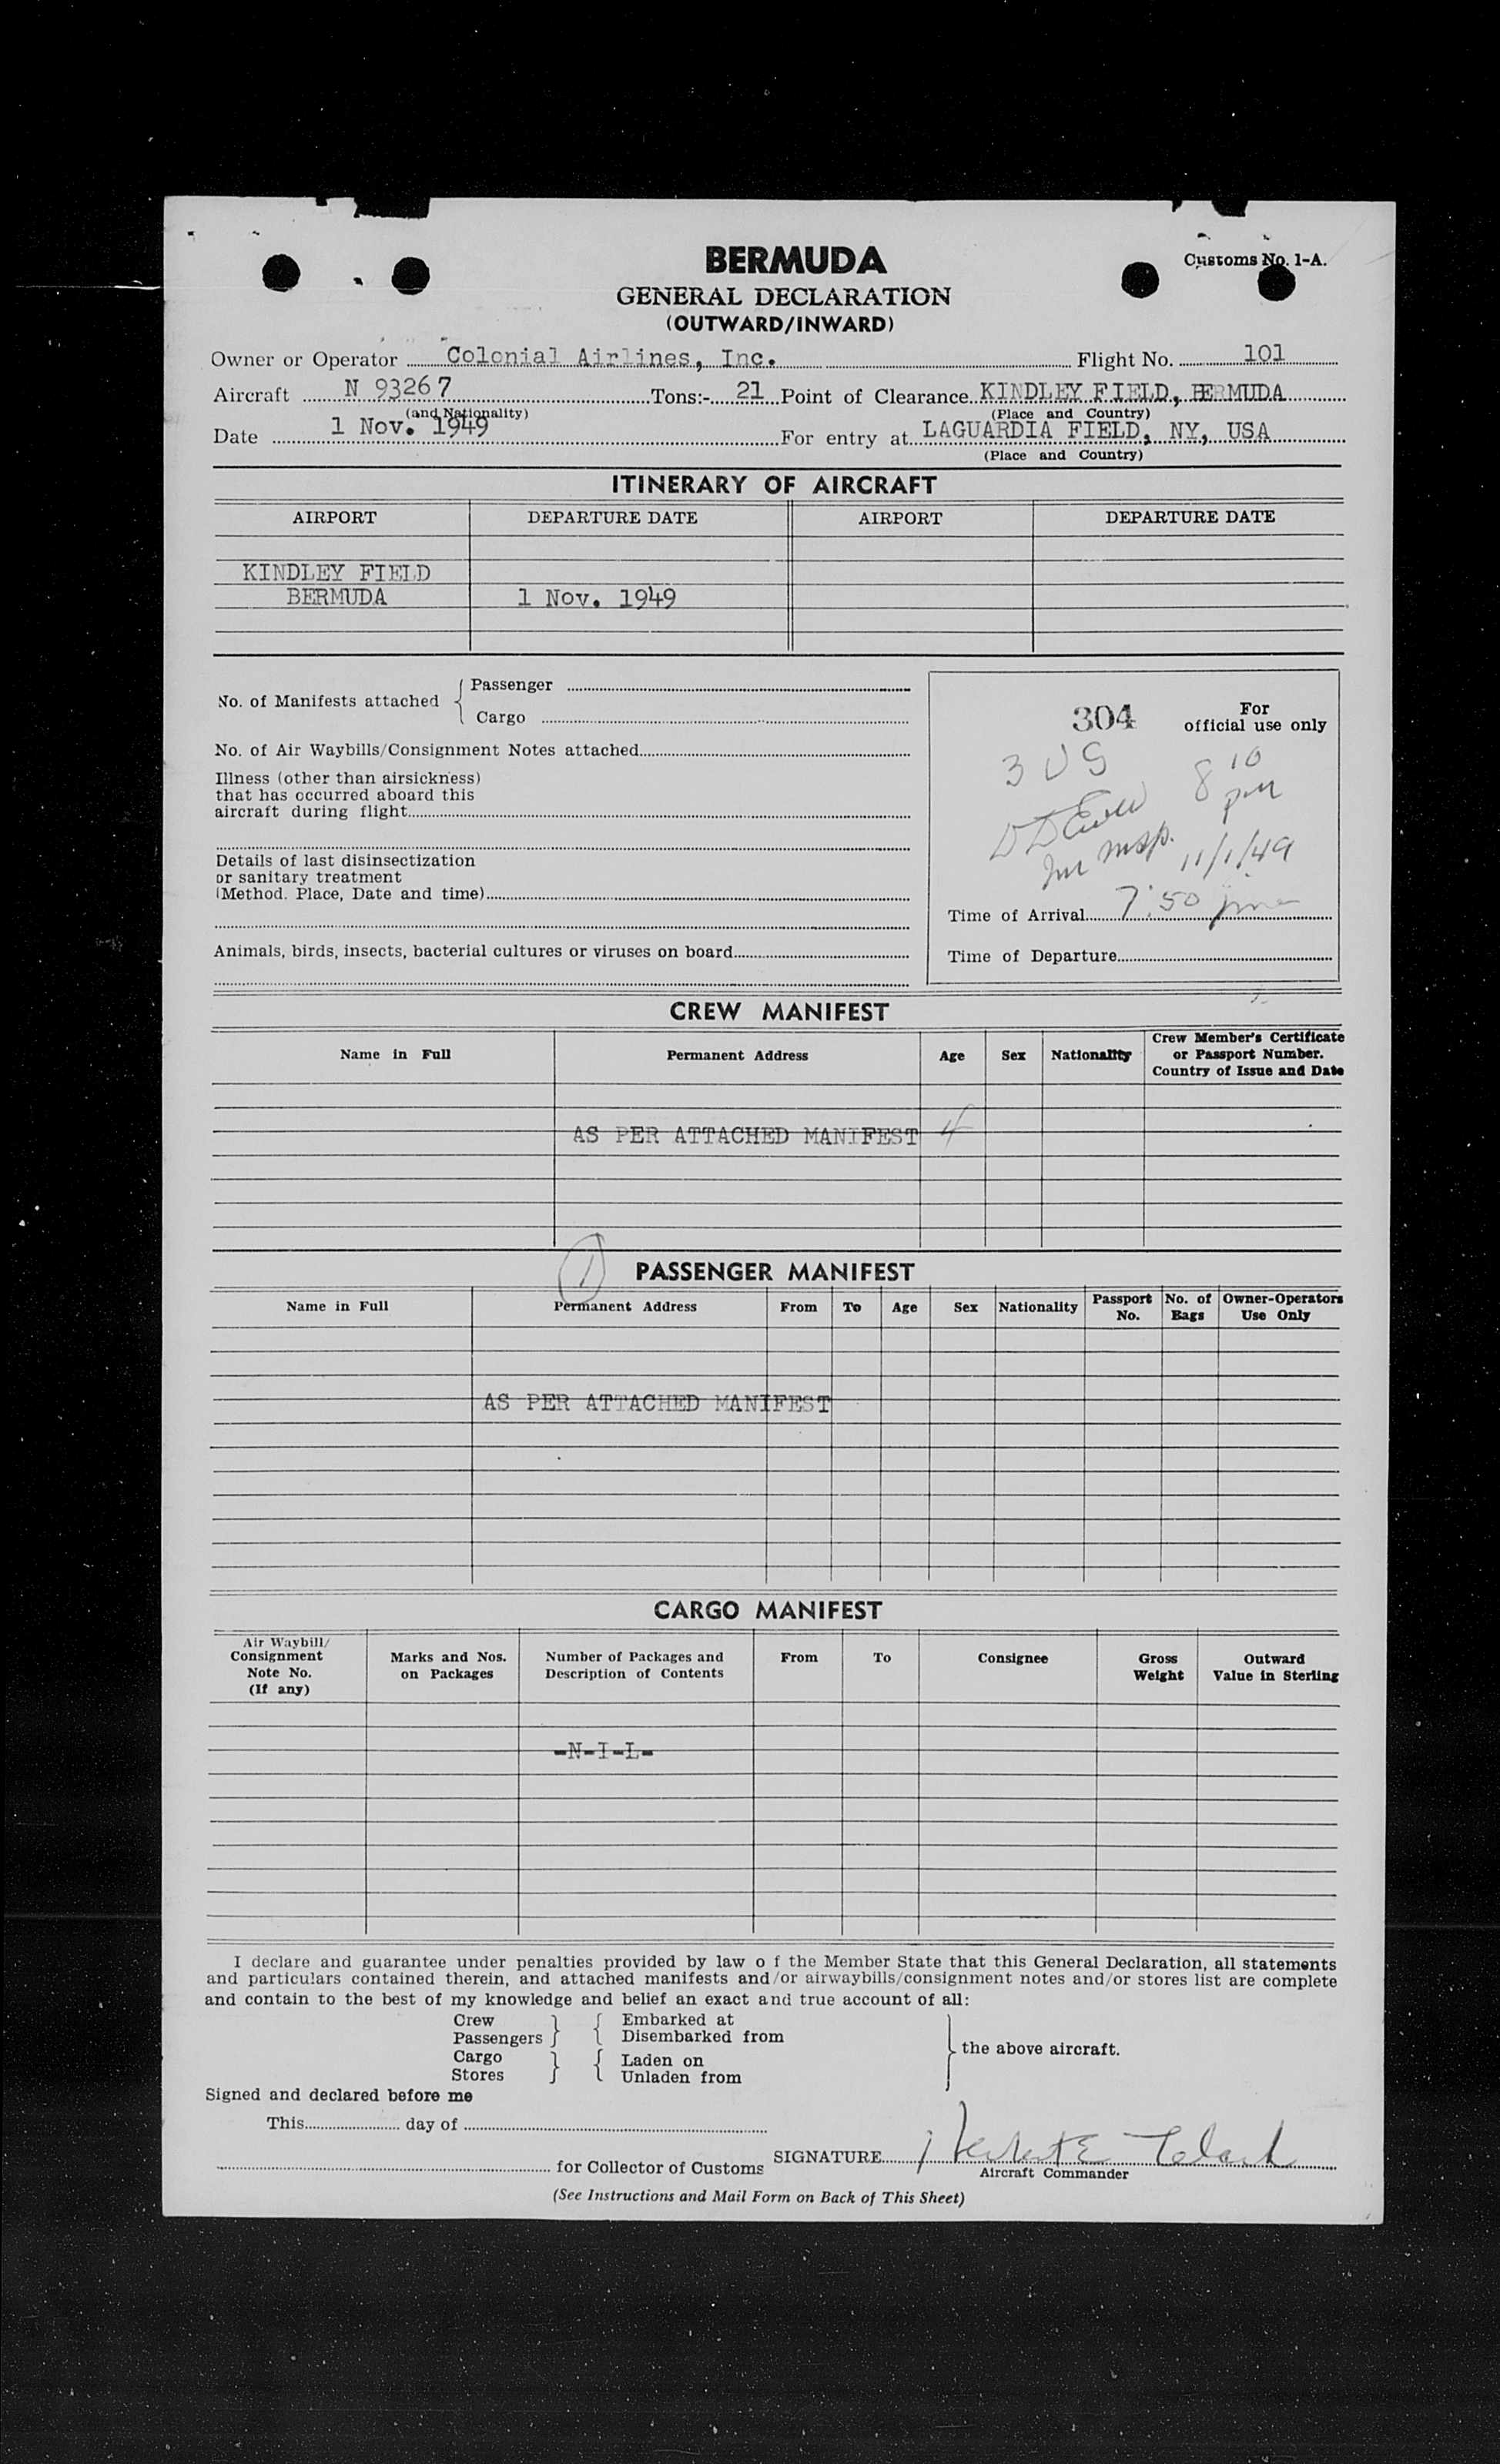 BERMUDA
Customs No. 1-A.
GENERAL DECLARATION
(OUTWARD/INWARD)
Owner or Operator Colonial Airlines, Inc. Flight No. 101
Aircraft N 93267 Tons:- 21 Point of Clearance KINDLEY FIELD, BERMUDA
(and Nationality) (Place and Country)
Date 1 Nov. 1949 For entry at LAGUARDIA FIELD, NY, USA
(Place and Country)
ITINERARY OF AIRCRAFT
AIRPORT DEPARTURE DATE AIRPORT DEPARTURE DATE
KINDLEY FIELD
BERMUDA 1 Nov. 1949
No. of Manifests attached
Passenger
Cargo
No. of Air Waybills/Consignment Notes attached
Illness (other than airsickness)
that has occurred aboard this
aircraft during flight
Details of last disinsectization
or sanitary treatment
(Method. Place, Date and time)
Animals, birds, insects, bacterial cultures or viruses on board
304
For
official use only
3 US
8 10
pm
Imm Insp.
11/1/49
Time of Arrival 7:50 pm
Time of Departure
CREW MANIFEST
Name in Full Permanent Address Age Sex Nationality Crew Member's Certificate
or Passport Number.
Country of Issue and Date
AS PER ATTACHED MANIFEST 4
1
PASSENGER MANIFEST
Name in Full Permanent Address From To Age Sex Nationality Passport No. No. of Bags Owner-Operators Use Only
AS PER ATTACHED MANIFEST
CARGO MANIFEST
Air Waybill/
Consignment
Note No.
(If any)
Marks and Nos.
on Packages
Number of Packages and
Description of Contents
From
To
Consignee
Gross
Weight
Outward
Value in Sterling
-N-I-L-
I declare and guarantee under penalties provided by law o f the Member State that this General Declaration, all statements
and particulars contained therein, and attached manifests and/or airwaybills/consignment notes and/or stores list are complete
and contain to the best of my knowledge and belief an exact and true account of all:
Crew Embarked at
Passengers Disembarked from
the above aircraft.
Cargo Laden on
Stores Unladen from
Signed and declared before me
This day of
for Collector of Customs
SIGNATURE
Aircraft Commander
(See Instructions and Mail Form on Back of This Sheet)